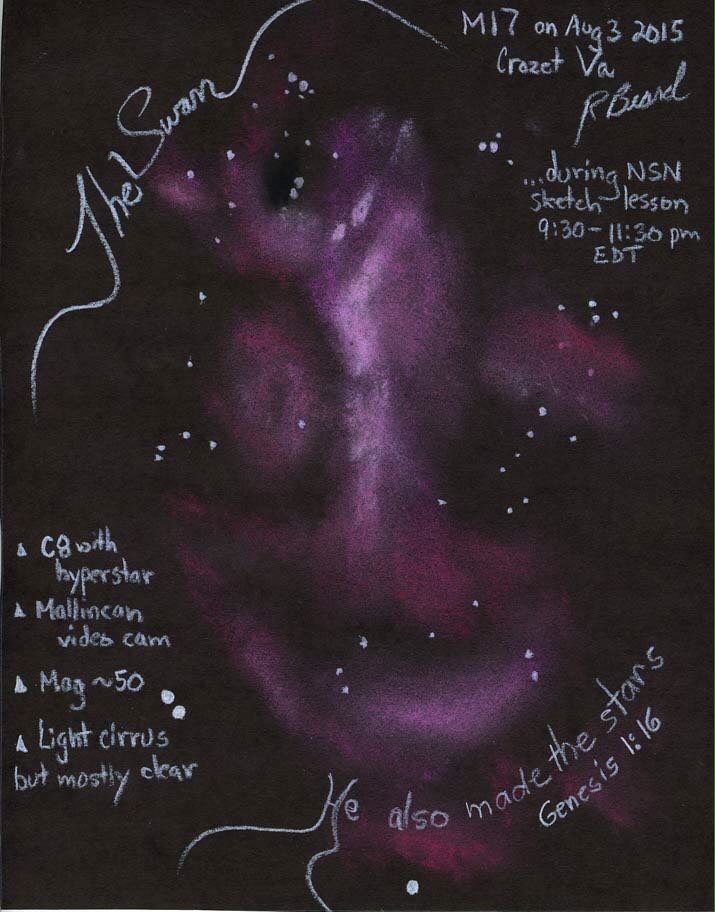 M17 on Aug 3 2015
Crozet Va
R Beard
The Swan
...during NSN
sketch lesson
9:30-11:30 pm
EDT
C8 with
hyperstar
Mallincan
video cam
Mag ~50
Light cirrus
but mostly clear
He also made the stars
Genesis 1:16